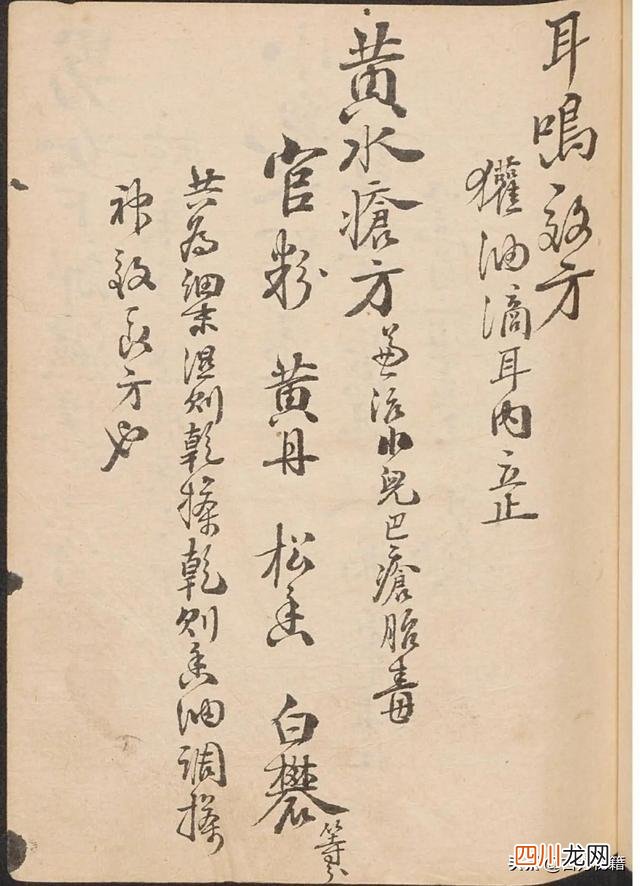 耳鳴效方
獾油滴耳內立止
黃水瘡方 兼治小兒巴瘡胎毒
官粉 黃丹 松香 白礬 等分
共為細末濕則乾摻乾則香油調搽
神效良方也
四川龙网
头条
秘籍